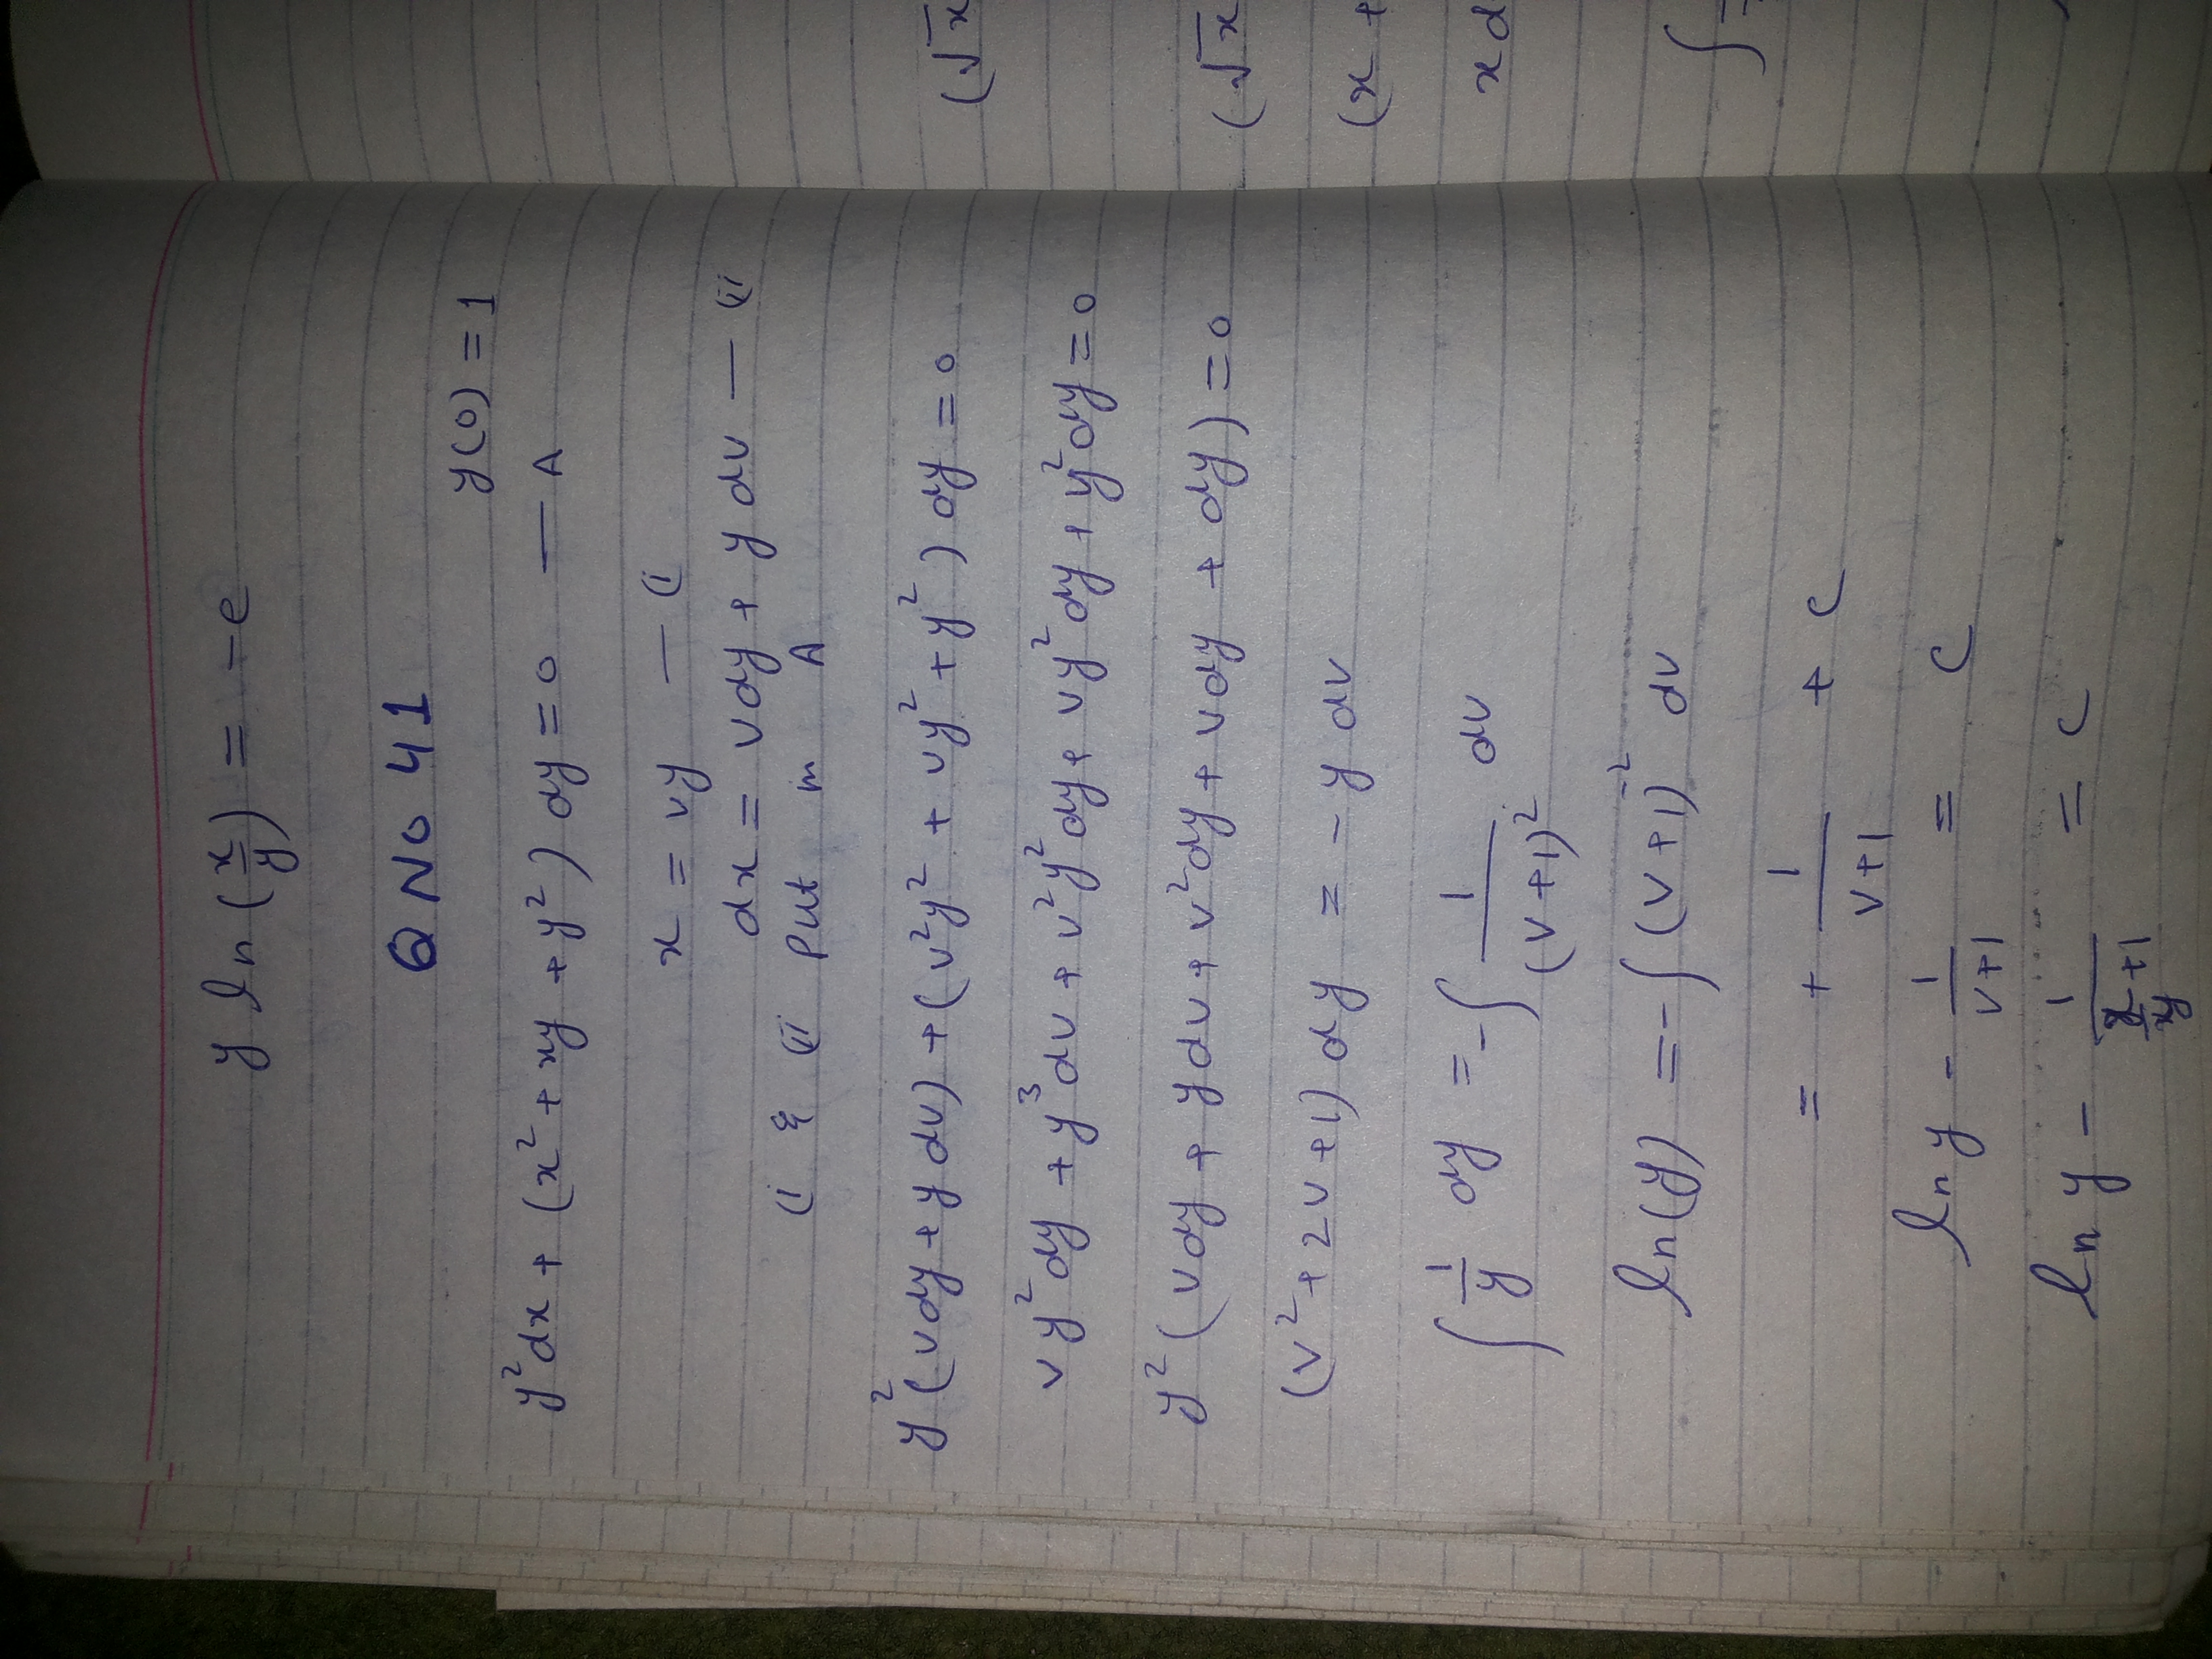 y ln (x/y) = -e
Q No 41
y(0) = 1
y²dx + (x² + xy + y²) dy = 0 — A
x = vy — (i
dx = vdy + y dv — (ii
(i & (ii Put in A
y²(vdy + y dv) + (v²y² + vy² + y²) dy = 0
vy²dy + y³dv + v²y²dy + vy²dy + y²dy = 0
y² (vdy + ydv + v²dy + vdy + dy) = 0
(v² + 2v + 1) dy = - y dv
∫ 1/y dy = -∫ 1/(v+1)² dv
ln(y) = -∫ (v+1)⁻² dv
= + 1/(v+1) + c
ln y - 1/(v+1) = c
ln y - 1/(x/y + 1) = c
(√x
(√x
(x +
x d
∫